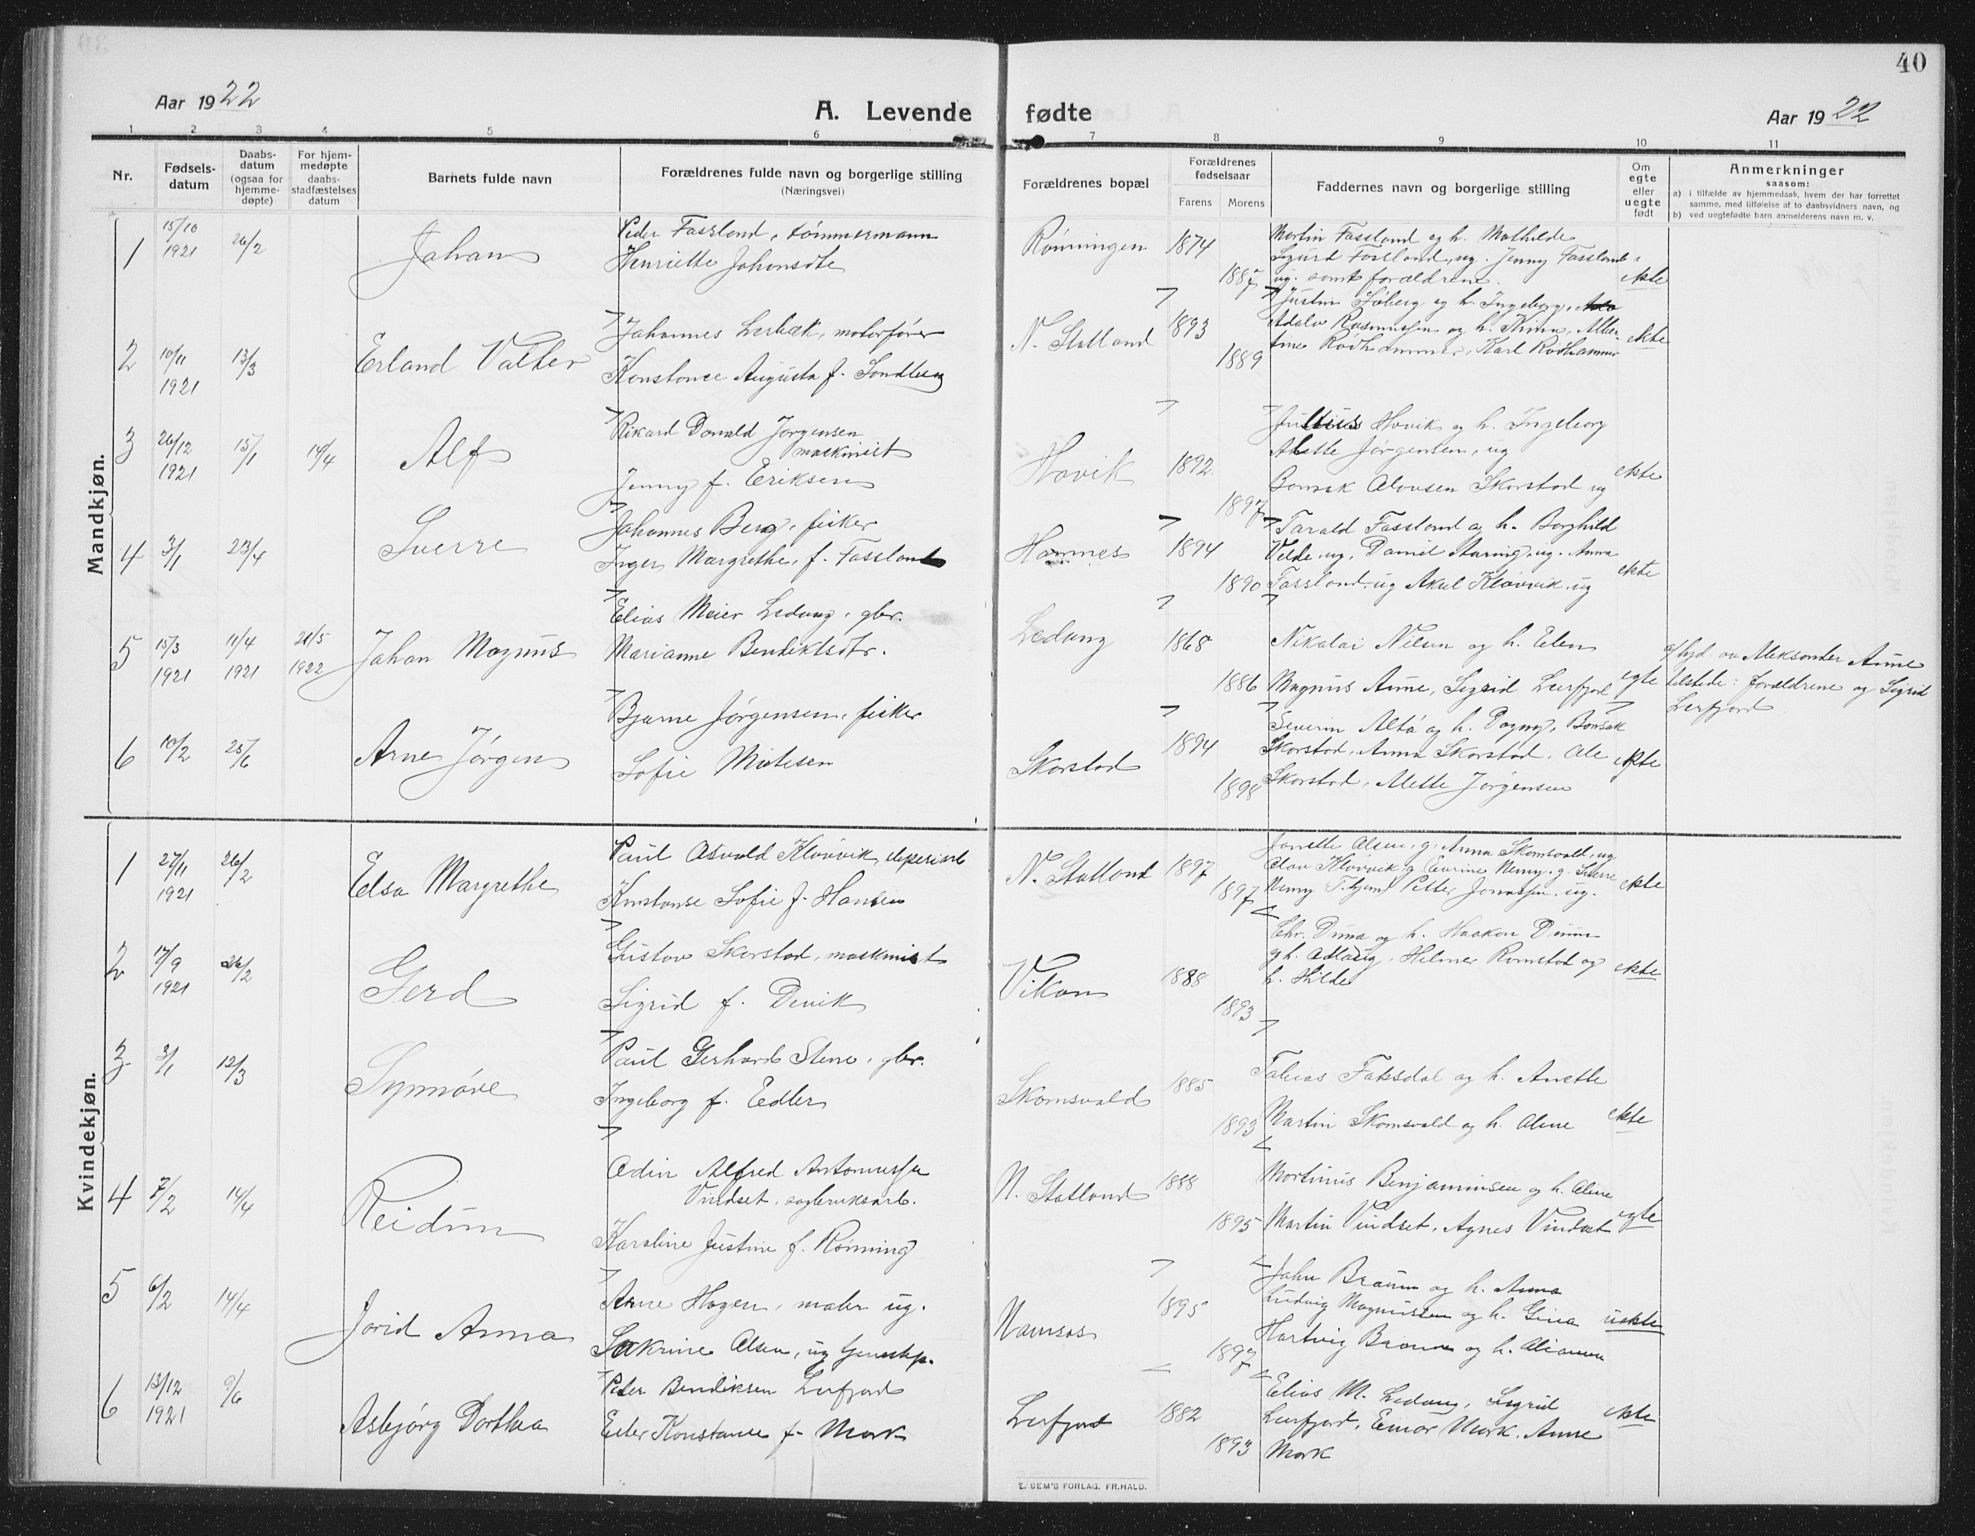 40
Aar 1922
A. Levende fødte
Aar 1922
1 2 3 4 5 6 7 8 9 10 11
Nr.
Fødsels-
datum
Daabs-
datum
(ogsaa for
hjemme-
døpte)
For hjem-
medøpte
daabs-
stadfæstelses
datum
Barnets fulde navn
Forældrenes fulde navn og borgerlige stilling
(Næringsvei)
Forældrenes bopæl
Forældrenes
fødselsaar
Farens Morens
Faddernes navn og borgerlige stilling
Om
egte
eller
uegte
født
Anmerkninger
saasom:
a) i tilfælde av hjemmedaab, hvem der har forrettet
samme, med tilføielse af to daabsvidners navn, og
b) ved uegtefødte barn anmelderens navn m. v.
Mandkjøn.
1 15/10 1921 26/2 Johan
Peder Fassland, tømmermann
Henriette Johansdte
Rønningen 1874 1887
Martin Fassland og h. Mathilde
Sigurd Fossland, ug. Jenny Fassland
ug. samt forældrene.
ekte
2 10/11 1921 13/3 Erland Valter
Johannes Lerbæk, motorfører
Konstance Augusta f. Sandberg
N. Statland 1893 1889
Justin Høberg og h. Ingeborg,
Adalv Rasmussen og h. Kima, Alber-
tine Rødhammer, Karl Rødhammer
ekte
3 26/12 1921 15/1 14/4 Alf
Rikard Donald Jørgensen
maskinist
Jenny f. Eriksen
Hovik 1892 1897
Julius Hovik og h. Ingeborg
Alette Jørgensen, ug
Bonsak Alovsen Skorstad ug
ekte
4 3/1 23/4 Sverre
Johannes Berg, fisker
Inger Margrethe, f. Fassland
Hamnes 1894 1890
Tarald Fassland og h. Borghild
Velde, ug, Daniel Staring, ug. Anna
Fassland, ug Aksel Kløvvik, ug
ekte
5 15/3 1921 11/4 1921 21/5 1922 Johan Magnus
Elias Meier Ledang, gbr.
Marianne Bendiktsdtr.
Ledang 1868 1886
Nikolai Nilsen og h. Elen
Magnus Aune, Sigrid Lerfjord
egte
a/ hjd. av Aleksander Aune
tilstede: forældrene og Sigrid
Lerfjord
6 10/2 25/6 Arne Jørgen
Bjarne Jørgensen, fisker
Sofie Matesen
Skorstad 1894 1898
Severin Altø og h. Dagny, Bonsak
Skorstad, Anna Skorstad, Ole
Skorstad, Alette Jørgensen
ekte
Kvindekjøn.
1 27/11 1921 26/2 Elsa Margrethe
Paul Asvald Kløvvik,
Konstanse Sofie f. Hansen
N. Statland 1897 1897
Janette Olsen, g. Anna Skomsvold, ug
Olav Kløvvik g Evrine Nemy, g. Sverre
Nemy Petter Jonassen, ug.
ekte
2 17/9 1921 26/2 Gerd
Gustav Skorstad, maskinist
Sigrid f. Devik
Vikan 1888 1893
Chr. Duna og h. Haakon Duun
og h. Adlaug, Helmer Romstad og
h. Hilde
ekte
3 3/1 12/3 Synnøve
Paul Gerhard Stene, gbr.
Ingeborg f. Edler
Skomsvald 1885 1893
Tobias Faksdal og h. Anette
Martin Skomsvold og h. Oline
ekte
4 7/2 14/4 Reidun
Odin Alfred Antonussen
Vindset, sagbruksarb.
Karoline Justine f. Rønning
N. Statland 1888 1895
Martinus Benjaminsen og h. Oline
Martin Vindset, Agnes Vindset
egte
5 6/2 14/4 Jorid Anna
Arne Hagen, maler ug.
Sakrine Olsen, ug
Namsos 1895 1897
John Braun og h. Anna
Ludvig Magnussen og h. Gina
Hartvig Braun og h.
uekte
6 13/12 1921 9/6 Asbjørg Dorthea
Peter Bendiksen Lerfjord
Eider Konstanse f. Mork
Lerfjord 1882 1893
Elias M. Ledang, Sigrid
Lerfjord, Einar Mork, Anne
Mork
ekte
E. SEM'S FORLAG, FR.HALD.